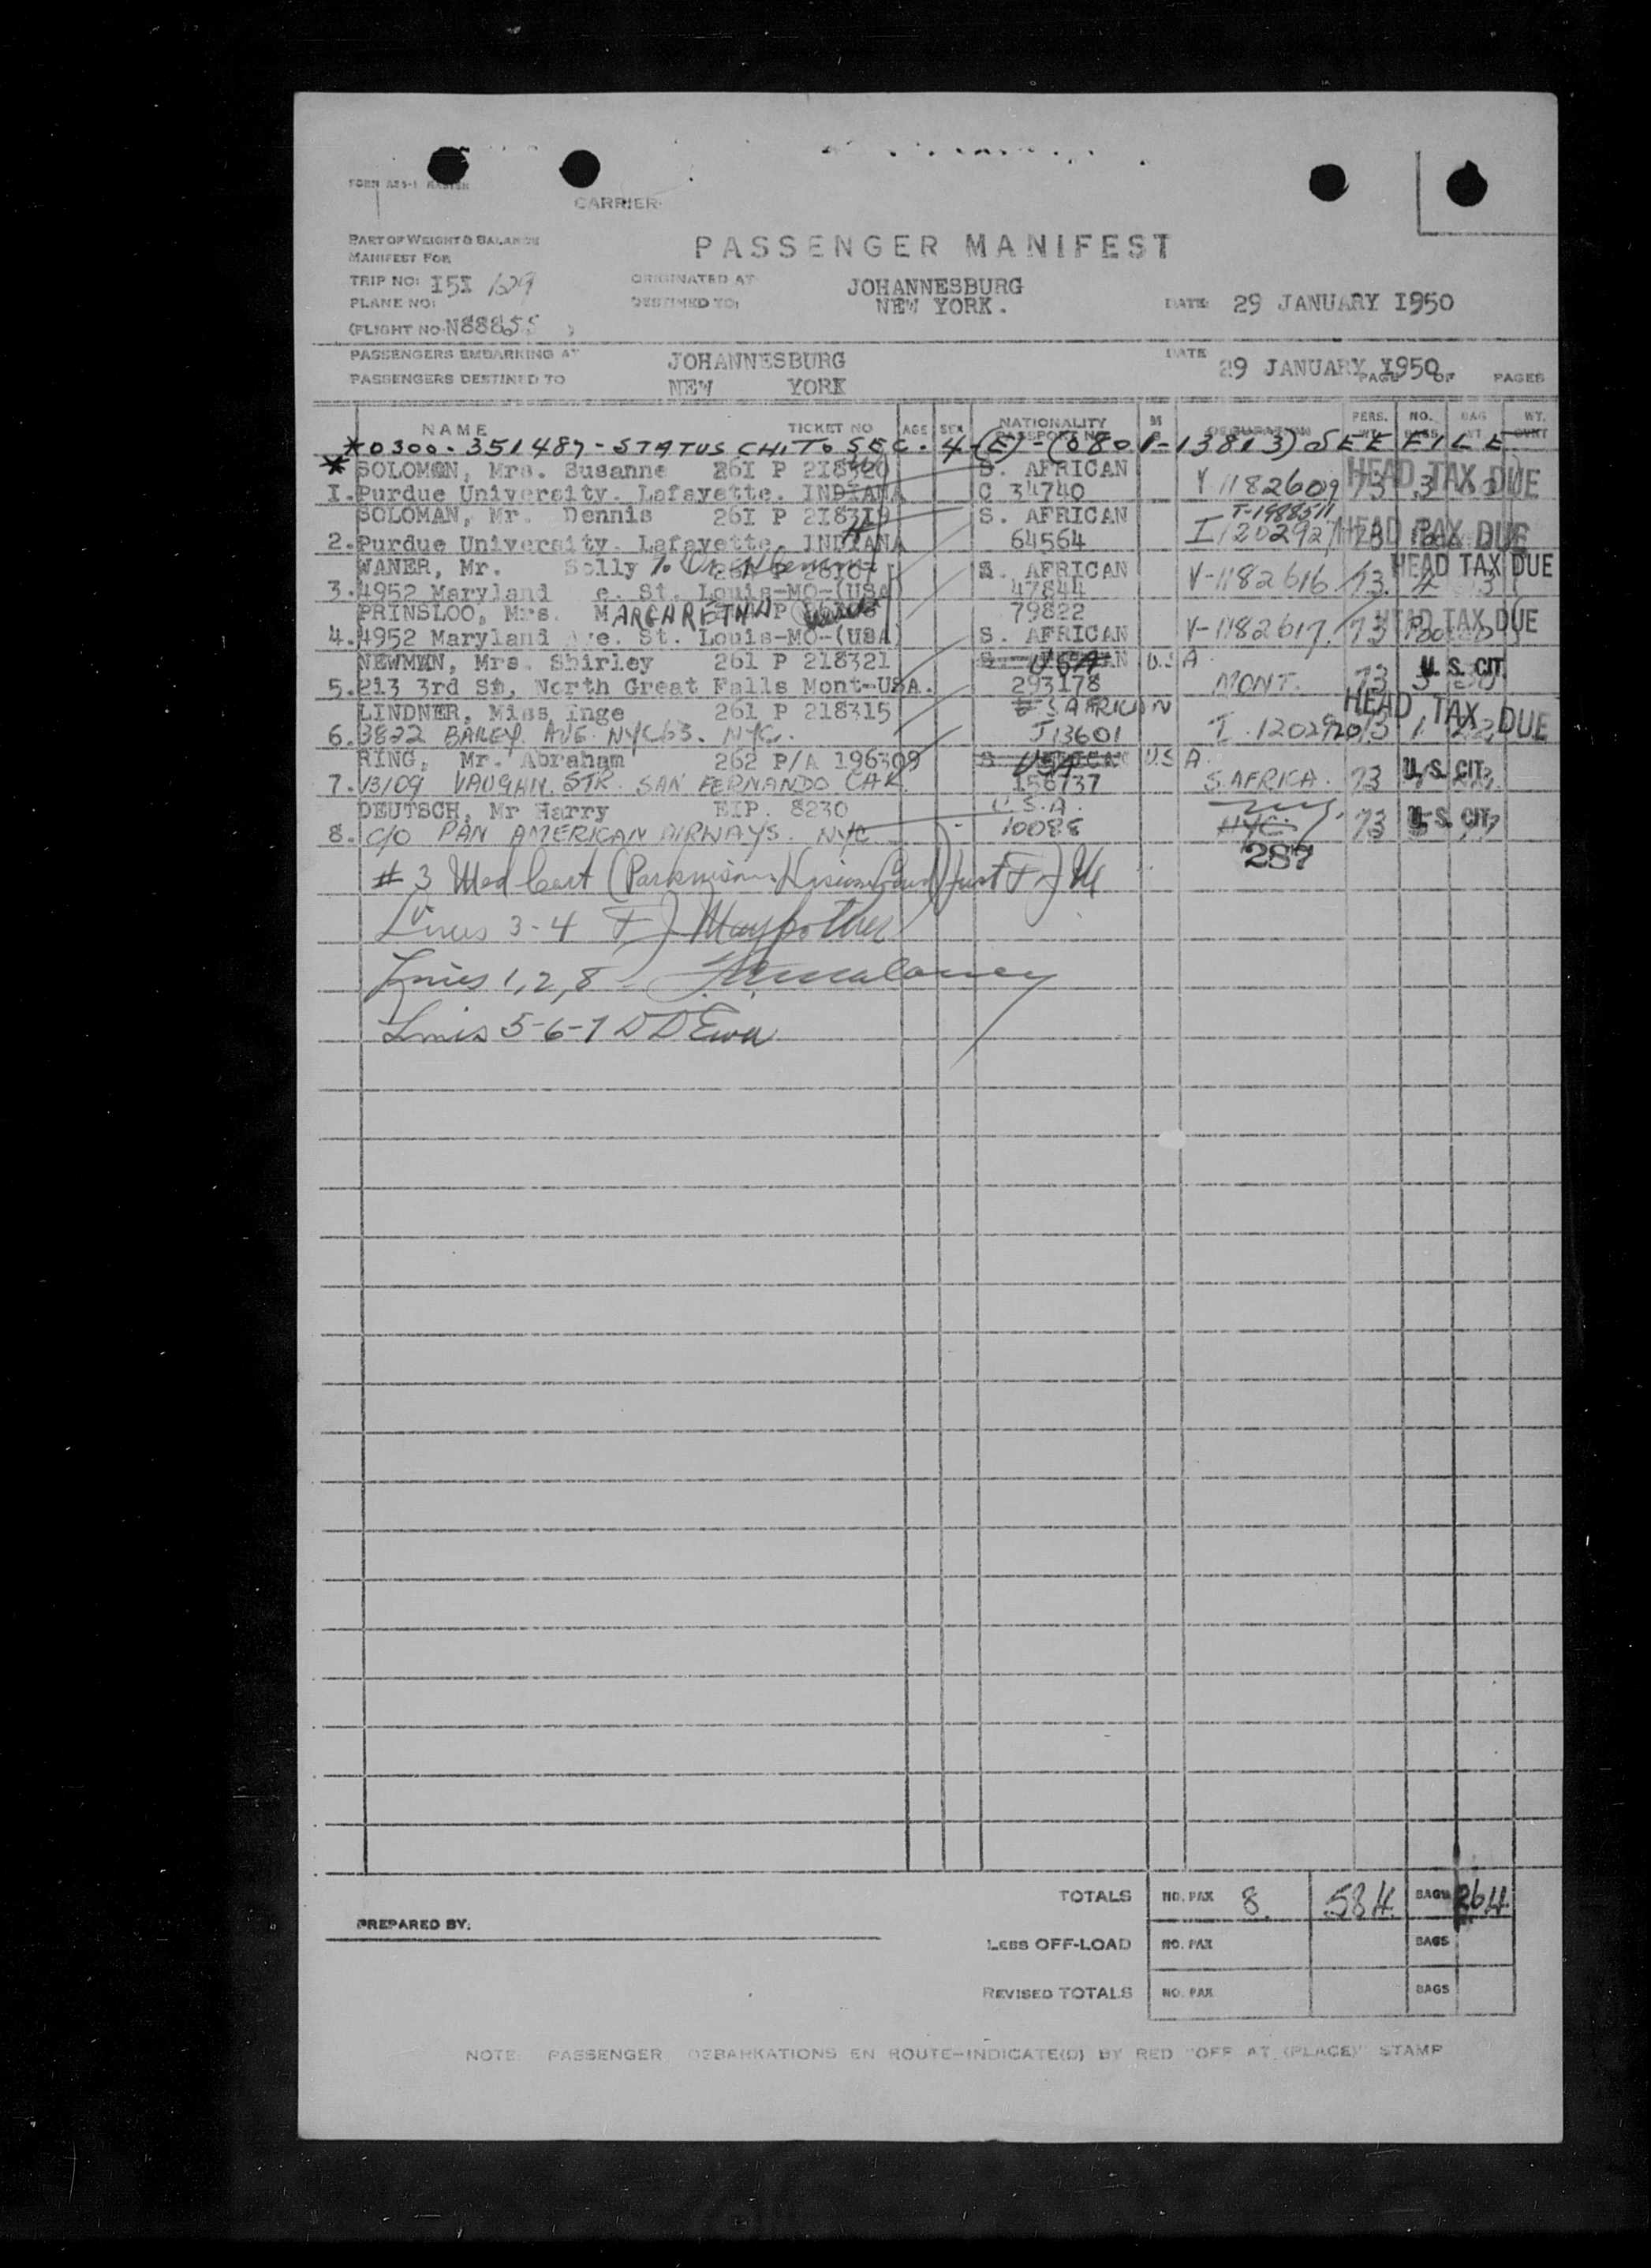 CARRIER
PART OF WEIGHT & BALANCE
MANIFEST FOR
PASSENGER MANIFEST
TRIP NO: I5I 1629
ORIGINATED AT JOHANNESBURG
PLANE NO:
DESTINED TO: NEW YORK.
DATE 29 JANUARY I950
(FLIGHT NO. N88855 )
PASSENGERS EMBARKING AT JOHANNESBURG
DATE 29 JANUARY I950
PASSENGERS DESTINED TO NEW YORK
PAGE OF PAGES
NAME TICKET NO AGE SEX NATIONALITY PERS. NO. BAG WT.
*0300-351487-STATUS CH, TO SEC. 4-(E)-(0801-13813) SEE FILE
* SOLOMON, Mrs. Susanne 26I P 218320 S. AFRICAN
I. Purdue University. Lafayette. INDIANA C 34740 V 1182609 73 HEAD TAX DUE
SOLOMAN, Mr. Dennis 26I P 218319 S. AFRICAN T-1988511
2. Purdue University. Lafayette. INDIANA 64564 I 1202927 HEAD TAX DUE
WANER, Mr. Solly S. AFRICAN HEAD TAX DUE
3. 4952 Maryland e. St. Louis-MO-(USA) 47844 V-1182616 73
PRINSLOO, Mrs. MARGARETHA 79822
4. 4952 Maryland Ave. St. Louis-MO-(USA) S. AFRICAN V-1182617 73 HEAD TAX DUE
NEWMAN, Mrs. Shirley 261 P 218321 USA U.S.A.
5. 213 3rd St, North Great Falls Mont-USA. 293178 MONT. 73 U. S. CIT.
LINDNER, Miss Inge 261 P 218315 S AFRICAN
6. 3822 BAILEY AVE. NYC 63. NYC. J13601 I 1202920 73 1 22 HEAD TAX DUE
RING, Mr. Abraham 262 P/A 196309 USA U.S.A.
7. 13109 VAUGHN STR. SAN FERNANDO CAL. 156737 S. AFRICA. 73 U. S. CIT.
DEUTSCH, Mr Harry EIP. 8230 U.S.A.
8. C/O PAN AMERICAN AIRWAYS. NYC 10088 NYC 73 U. S. CIT.
287
# 3 Med Cert
Lines 3-4
Lines 1,2,8
Lines 5-6-7
TOTALS NO. PAX 8. 584 BAGS 264
PREPARED BY:
LESS OFF-LOAD NO. PAX BAGS
REVISED TOTALS NO. PAX BAGS
NOTE: PASSENGER DEBARKATIONS EN ROUTE-INDICATE(D) BY RED "OFF AT (PLACE)" STAMP